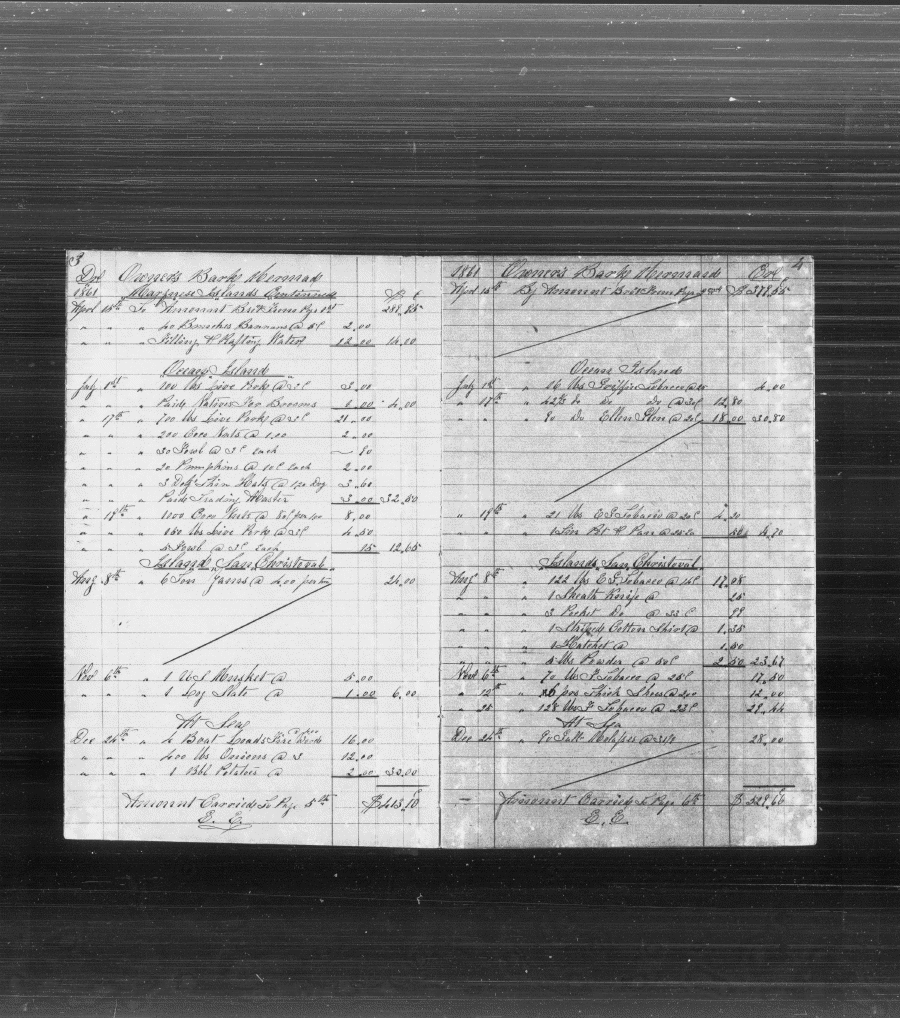 3
Dr Owners Bark Mermaid
1861 Marquise Islands Continued $ c
April 15th To Amount Brot From Page 1st 288,85
" " " 40 Bunches Bannans @ 5c 2.00
" " " Filling & Rafting Water 12.00 14.00
Ocean Island
July 1st " 100 lbs Live Pork @ 3c 3.00
" " " Paide Natives For Brooms 1.00 4.00
" 17th " 700 lbs Live Pork @ 3c 21.00
" " " 200 Coco Nuts @ 1.00 2.00
" " " 30 Fowls @ 3c each 80
" " " 20 Pumpkins @ 10c each 2.00
" " " 3 Doz Hats @ 120 Doz 3.60
" " " Paide Trading Master 3.00 32.50
" 19th " 1000 Coco Nuts @ 80c per 100 8.00
" " " 150 lbs Live Pork @ 3c 4.50
" " " 5 Fowls @ 3c each 15 12,65
Island "San Christoval"
Aug 8th " 6 Ton Yams @ 4.00 per ton 24.00
Nov 6th " 1 U S Musket @ 5.00
" " " 1 Log Slate @ 1.00 6.00
At Sea
Dec 24th " 4 Boat Loads Fire Wood 16.00
" " " 400 lbs Onions @ 3 12.00
" " " 1 Bbl Potatoes @ 2.00 30.00
Amount Carried To Page 5th $413,10
E. E.
4
1861 Owners Bark Mermaid Cr
April 15th By Amount Brot From Page 2nd $ 377,65
Ocean Island
July 1st " 16 lbs Griffin Tobacco @ 25 4.00
" 17th " 42⅔ Do Do Do @ 30c 12,80
" " " 90 Do Ellen Glen @ 20c 18.00 30,80
" 19th " 21 lbs E G Tobacco @ 20c 4.20
" " " 1 Tin Pot & Pan @ 50 4.70
Islands "San Christoval"
Aug 8th " 122 lbs E G Tobacco @ 14c 17.08
" " " 1 Sheath Knife @ 25
" " " 3 Pocket Do @ 33c 99
" " " 1 Striped Cotton Shirt @ 1.35
" " " 1 Hatchet @ 1.50
" " " 5 lbs Powder @ 50c 2.50 23,67
Nov 6th " 70 lbs F Tobacco @ 25c 17.50
" 12th " 6 prs Thick Shoes @ 200 12.00
" 25 " 128 lbs F Tobacco @ 23c 29.44
At Sea
Dec 24th " 90 Galls Molasses @ 28.00
Amount Carried To Page 6th $ 529,66
E. E.